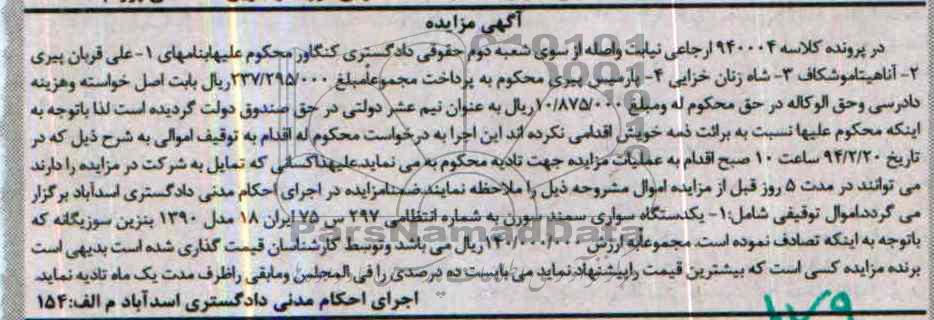 آگهی مزایده
در پرونده کلاسه ۹۴۰۰۰۴ ارجاعی نیابت واصله از سوی شعبه دوم حقوقی دادگستری کنگاور محکوم علیهابنامهای ۱- علی قربان پیری
۲- آناهیتاموشکاف ۳- شاه زنان خزایی ۴- پارمیس پیری محکوم به پرداخت مجموعاًمبلغ ۲۳۷/۲۹۵/۰۰۰ریال بابت اصل خواسته وهزینه
دادرسی وحق الوکاله در حق محکوم له ومبلغ ۱۰/۸۷۵/۰۰۰ریال به عنوان نیم عشر دولتی در حق صندوق دولت گردیده است لذا باتوجه به
اینکه محکوم علیها نسبت به برائت ذمه خویش اقدامی نکرده اند این اجرا به درخواست محکوم له اقدام به توقیف اموالی به شرح ذیل که در
تاریخ ۹۴/۲/۲۰ ساعت ۱۰ صبح اقدام به عملیات مزایده جهت تادیه محکوم به می نماید.علیهذاکسانی که تمایل به شرکت در مزایده را دارند
می توانند در مدت ۵ روز قبل از مزایده اموال مشروحه ذیل را ملاحظه نمایند.ضمنامزایده در اجرای احکام مدنی دادگستری اسدآباد برگزار
می گردد.اموال توقیفی شامل:۱- یکدستگاه سواری سمند سورن به شماره انتظامی ۲۹۷ س ۷۵ ایران ۱۸ مدل ۱۳۹۰ بنزین سوزیگانه که
باتوجه به اینکه تصادف نموده است. مجموعابه ارزش ۱۴۰/۰۰۰/۰۰۰ریال می باشد وتوسط کارشناسان قیمت گذاری شده است بدیهی است
برنده مزایده کسی است که بیشترین قیمت راپیشنهاد نماید می بایست ده درصدی را فی المجلس ومابقی راظرف مدت یک ماه تادیه نماید.
اجرای احکام مدنی دادگستری اسدآباد م الف:۱۵۴
ParsNamadData